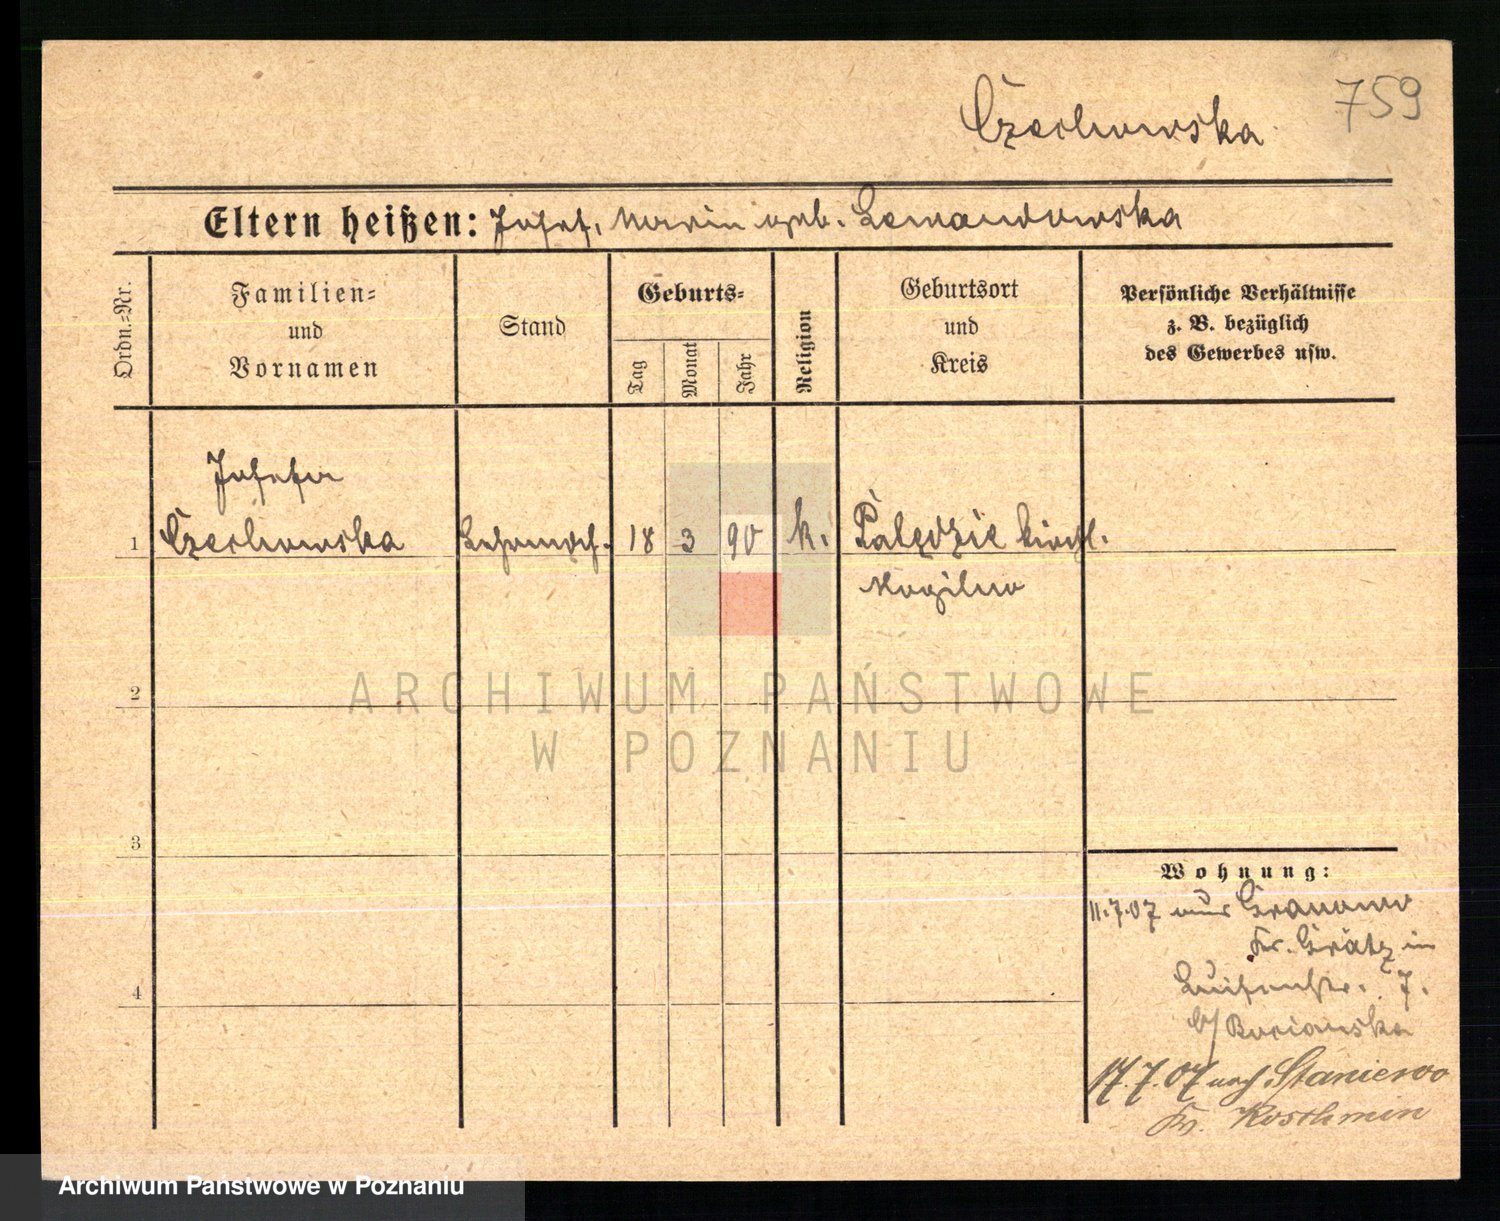 759
Czechowska
Eltern heißen: Josef, Maria geb. Lewandowska
Ordn.-Nr.
Familien-
und
Vornamen
Stand
Geburts-
Tag
Monat
Jahr
Religion
Geburtsort
und
Kreis
Persönliche Verhältnisse
z. B. bezüglich
des Gewerbes usw.
Josefa
1 Czechowska 18 3 90 k. Palędzie kirchl.
Mogilno
ARCHIWUM PAŃSTWOWE
W POZNANIU
2
3
4
Wohnung:
11.7.07 aus Granowo
Kr. Grätz in
Luisenstr. 7.
b/
17.7.07 nach Staniewo
Kr. Koschmin
Archiwum Państwowe w Poznaniu